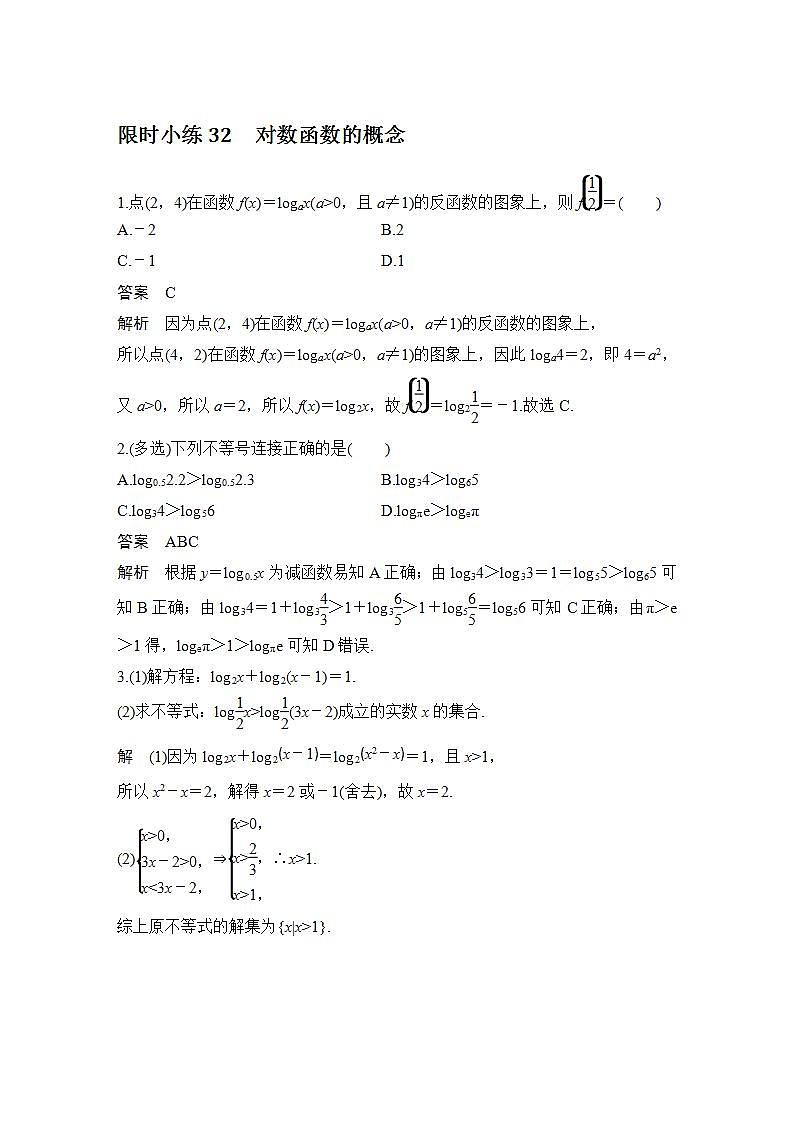 限时小练 32　对数函数的概念
1.点(2，4)在函数 f(x)＝logₐx(a>0，且 a≠1)的反函数的图象上，则 f(1/2)＝(　　)
A.－2　　B.2
C.－1　　D.1
答案　C
解析　因为点(2，4)在函数 f(x)＝logₐx(a>0，a≠1)的反函数的图象上，
所以点(4，2)在函数 f(x)＝logₐx(a>0，a≠1)的图象上，因此 logₐ4＝2，即 4＝a²，
又 a>0，所以 a＝2，所以 f(x)＝log₂x，故 f(1/2)＝log₂1/2＝－1.故选 C.
2.(多选)下列不等号连接正确的是(　　)
A.log₀.₅2.2＞log₀.₅2.3　　B.log₃4＞log₆5
C.log₃4＞log₅6　　D.log_πe＞logₑπ
答案　ABC
解析　根据 y＝log₀.₅x 为减函数易知 A 正确；由 log₃4＞log₃3＝1＝log₅5＞log₆5 可
知 B 正确；由 log₃4＝1＋log₃4/3＞1＋log₃6/5＞1＋log₅6/5＝log₅6 可知 C 正确；由 π＞e
＞1 得，logₑπ＞1＞log_πe 可知 D 错误.
3.(1)解方程：log₂x＋log₂(x－1)＝1.
(2)求不等式：log1/2x>log1/2(3x－2)成立的实数 x 的集合.
解　(1)因为 log₂x＋log₂(x－1)＝log₂(x²－x)＝1，且 x>1，
所以 x²－x＝2，解得 x＝2 或－1(舍去)，故 x＝2.
(2){x>0，3x－2>0，x<3x－2，⇒{x>0，x>2/3，x>1，∴x>1.
综上原不等式的解集为{x|x>1}.